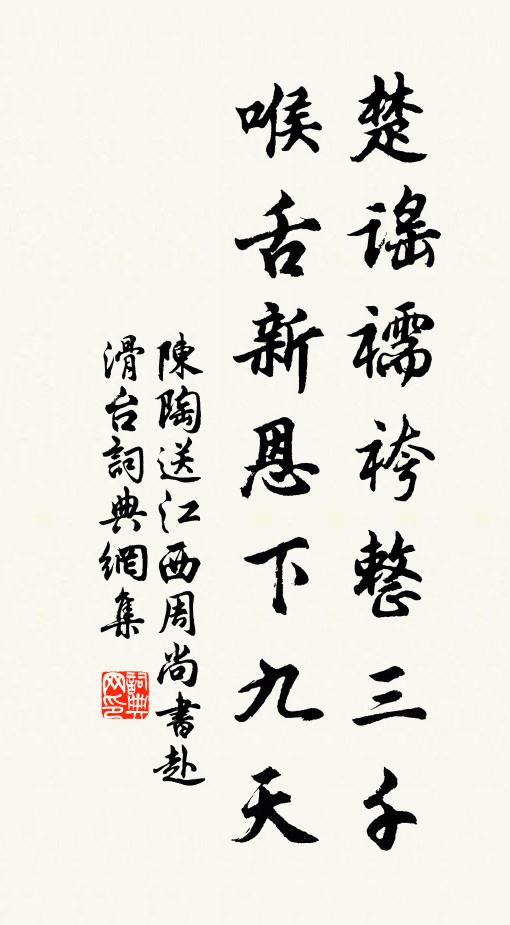 楚謠襦袴整三千
喉舌新恩下九天
陳陶送江西周尚書赴
滑台詞典網集
詞典网印